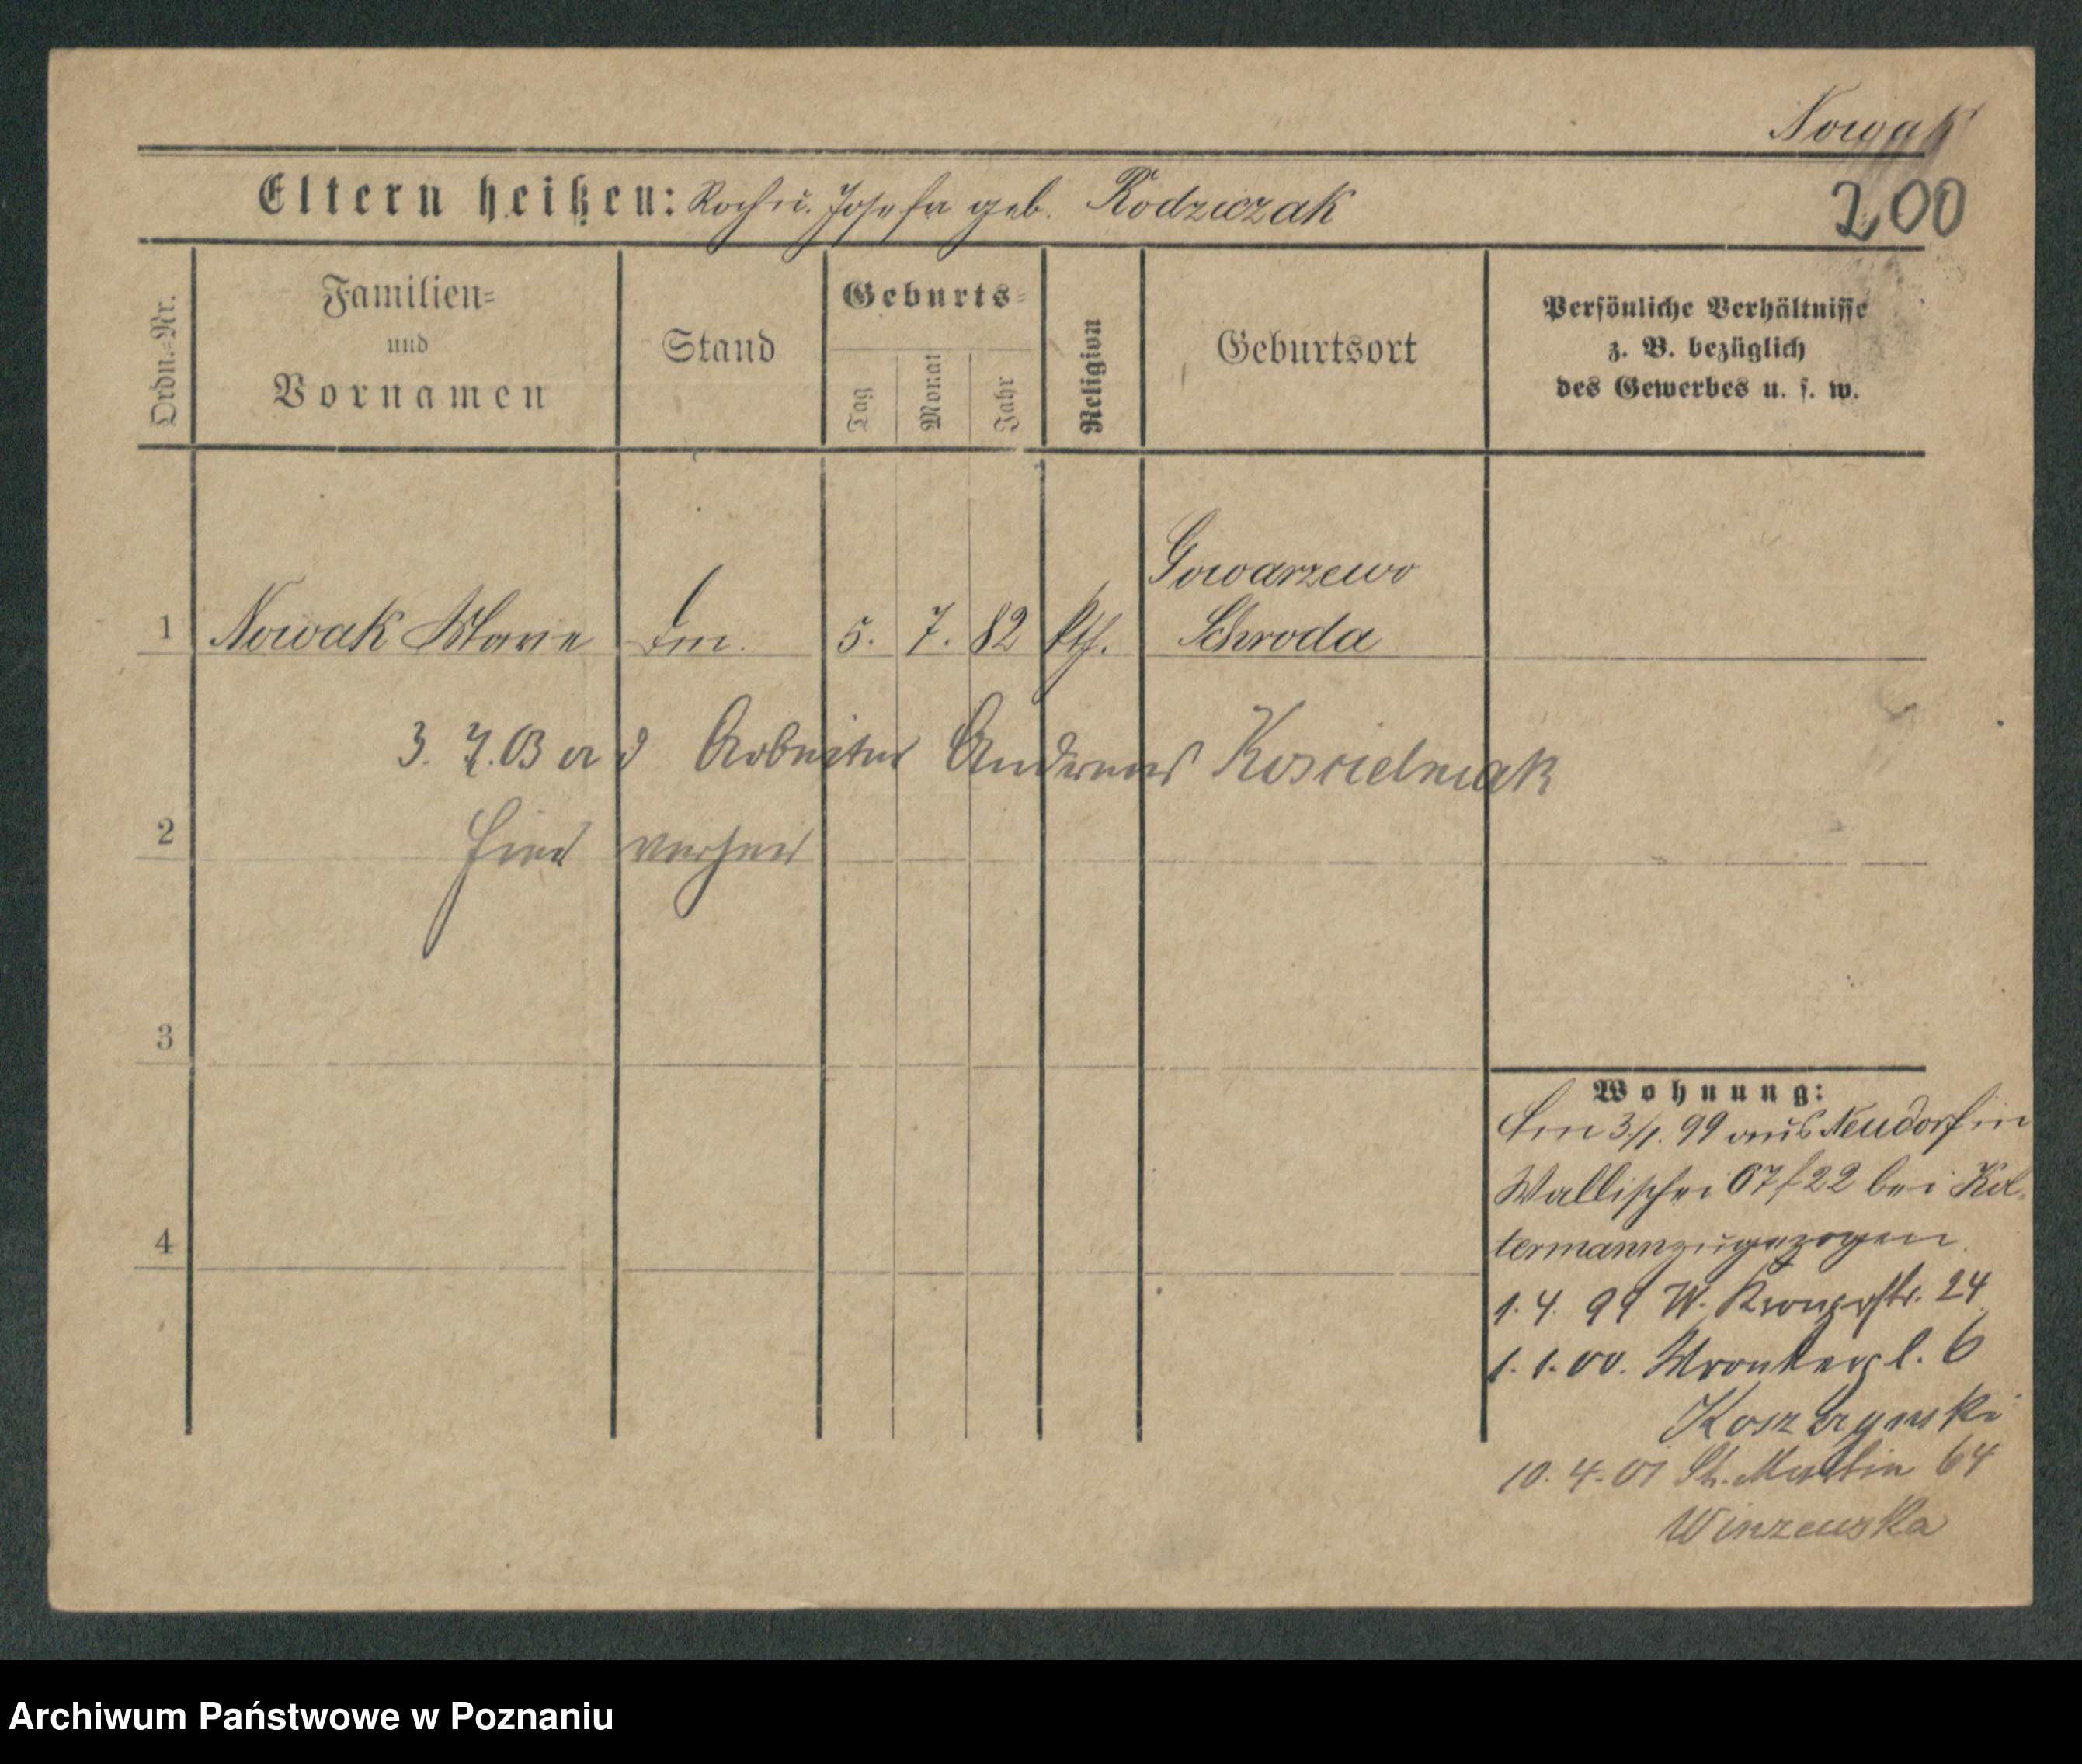 Nowak
200
Eltern heißen: Roch u. Josefa geb. Rodziczak
Ordn.=Nr.
Familien=
und
Vornamen
Stand
Geburts=
Tag
Monat
Jahr
Religion
Geburtsort
Persönliche Verhältnisse
z. B. bezüglich
des Gewerbes u. s. w.
Gowarzewo
1 Nowak Marie 5. 7. 82 kth. Schroda
3. 7. 03 a d Arbeiter Andreas Koscielniak
2 hier verher
3
4
Wohnung:
Am 3/1. 99 aus Neudorf in
Wallischei 67/22 bei Kol-
termann zugezogen
1. 4. 99 W. Kronprstr. 24
1. 1. 00. Wronkerpl. 6
10. 4. 01 St. Martin 64
Archiwum Państwowe w Poznaniu